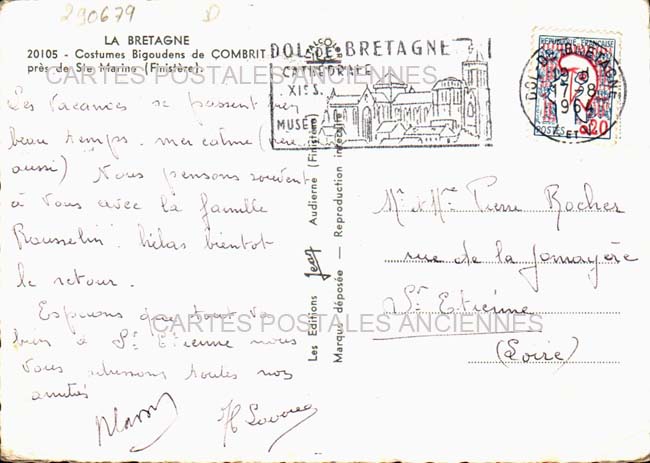 290679 D
LA BRETAGNE
20105 - Costumes Bigoudens de COMBRIT
près de Ste Marine (Finistère).
CARTES POSTALES ANCIENNES
Les vacances se passent bien
beau temps. mer calme (
aussi) Nous pensons souvent
à vous avec la famille
Rousselin. hélas bientôt
le retour.
Espérons que tout va
bien à St Etienne nous
vous adressons toutes nos
amitiés
CARTES POSTALES ANCIENNES
Les Editions Jean Audierne (Finistère)
Marque déposée — Reproduction interdite
DOL DE BRETAGNE
CATHÉDRALE
XIe S.
MUSÉE
DOL DE BRETAGNE
17-8
196
REPUBLIQUE FRANCAISE
POSTES 0,20
Mr et Mme Pierre Rocher
rue de la Jomayère
St Etienne
(Loire)